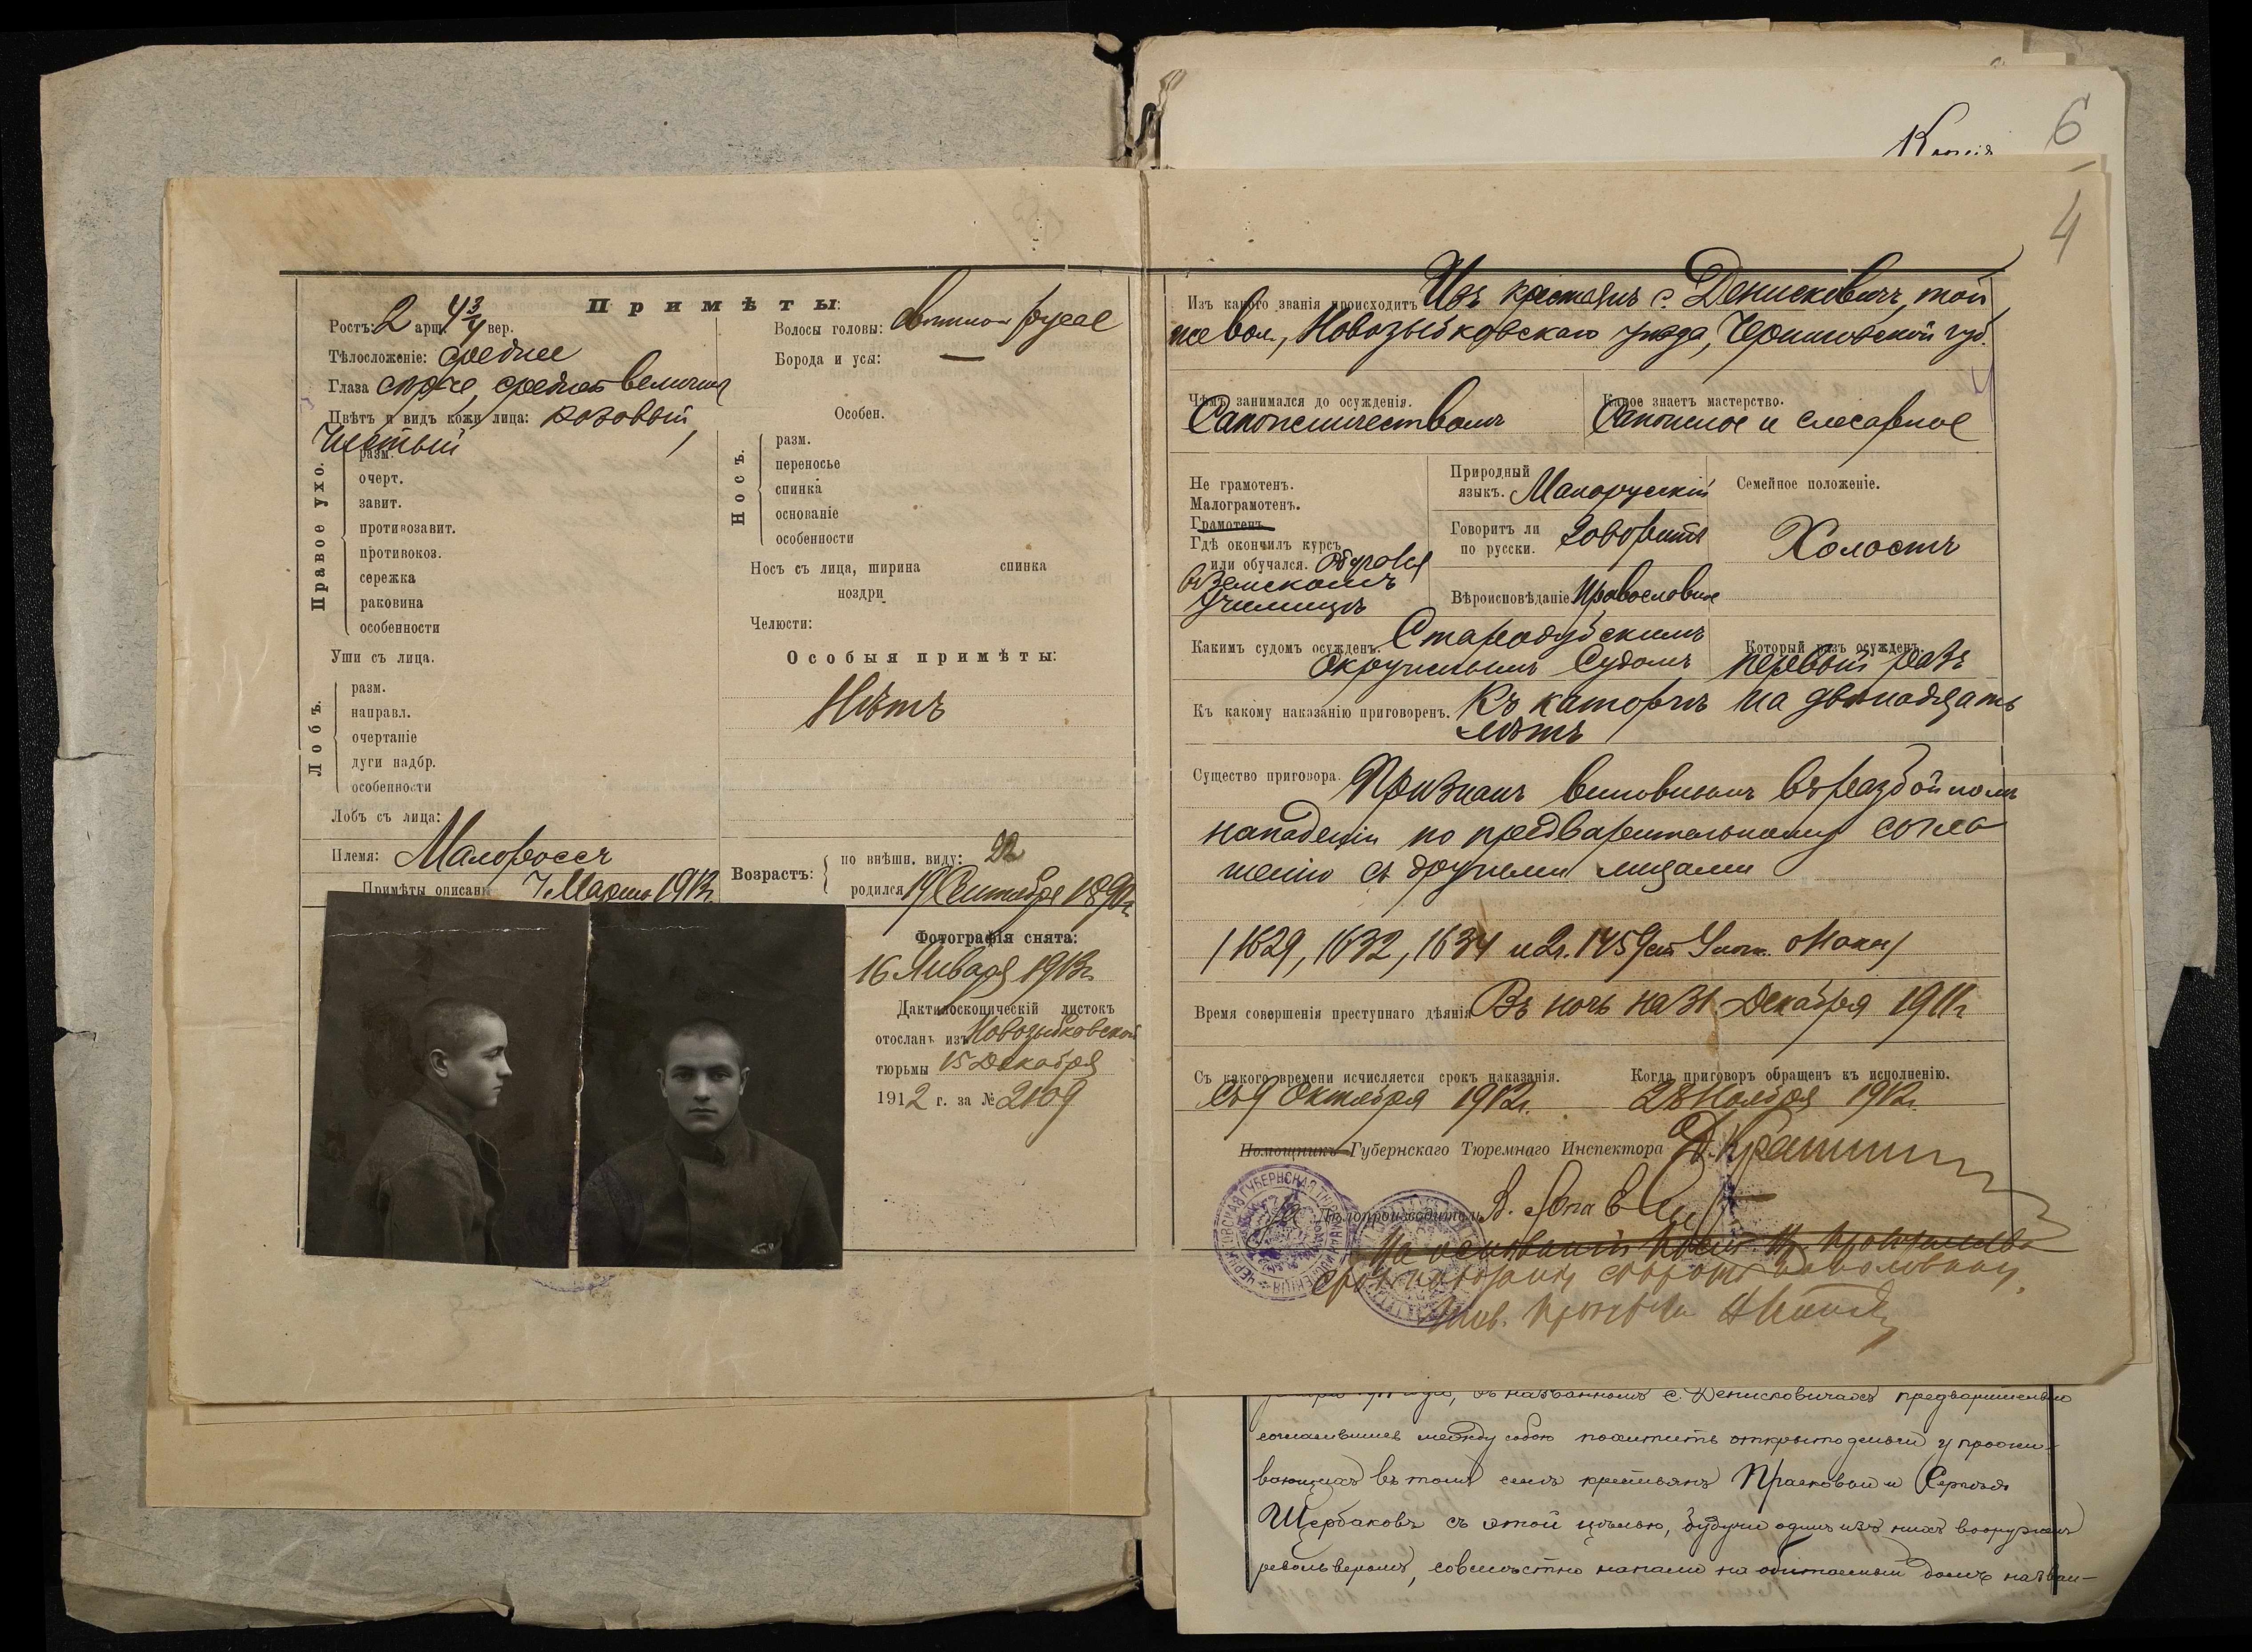 6
Копія
4
Примѣты:
Ростъ: 2 арш. 4 3/4 вер.
Тѣлосложеніе: среднее
Глаза сѣрые, средней величины
Цвѣтъ и видъ кожи лица: розовый,
чистый
Правое ухо.
разм.
очерт.
завит.
противозавит.
противокоз.
сережка
раковина
особенности
Уши съ лица.
Лобъ.
разм.
направл.
очертаніе
дуги надбр.
особенности
Лобъ съ лица:
Племя: Малороссъ
Примѣты описаны 7 Марта 1913 г.
Волосы головы: свѣтло-русые
Борода и усы: —
Особен.
Носъ.
разм.
переносье
спинка
основаніе
особенности
Носъ съ лица, ширина спинка
ноздри
Челюсти:
Особыя примѣты:
Нѣтъ
Возрастъ:
по внѣшн. виду: 22
родился 19 Сентября 1890 г.
Фотографія снята:
16 Января 1913 г.
Дактилоскопическій листокъ
отосланъ изъ Новозыбковской
тюрьмы 15 Декабря
1912 г. за № 2169
Изъ какого званія происходитъ Изъ крестьянъ с. Денисковичъ, той
же вол., Новозыбковскаго уѣзда, Черниговской губ.
Чѣмъ занимался до осужденія.
Сапожничествомъ
Какое знаетъ мастерство.
Сапожное и слесарное
Не грамотенъ.
Малограмотенъ.
Грамотенъ
Гдѣ окончилъ курсъ
или обучался. Обучался
въ Земскомъ
Училищѣ
Природный
языкъ. Малорусскій
Говоритъ ли
по русски. Говоритъ
Вѣроисповѣданіе Православное
Семейное положеніе.
Холостъ
Какимъ судомъ осужденъ. Стародубскимъ
Окружнымъ Судомъ
Который разъ осужденъ.
первый разъ
Къ какому наказанію приговоренъ. Къ каторгѣ на двѣнадцать
лѣтъ
Существо приговора. Признанъ виновнымъ въ разбойномъ
нападеніи по предварительному согла
шенію съ другими лицами
/1629, 1632, 1634 и 2 ч. 1459 ст. Улож. о Наказ/
Время совершенія преступнаго дѣянія Въ ночь на 31 Декабря 1911 г.
Съ какого времени исчисляется срокъ наказанія.
Съ 9 Октября 1912 г.
Когда приговоръ обращенъ къ исполненію.
28 Ноября 1912 г.
Помощникъ Губернскаго Тюремнаго Инспектора
Дѣлопроизводитель
На основаніи
въ названномъ с. Денисковичахъ предварительно
согласившись между собою похитить открыто деньги у прожи-
вающихъ въ томъ селѣ крестьянъ Прасковьи и Сергѣя
Щербаковъ съ этой цѣлью, будучи одинъ изъ нихъ вооруженъ
револьверомъ, совмѣстно напали на обитаемый домъ назван-